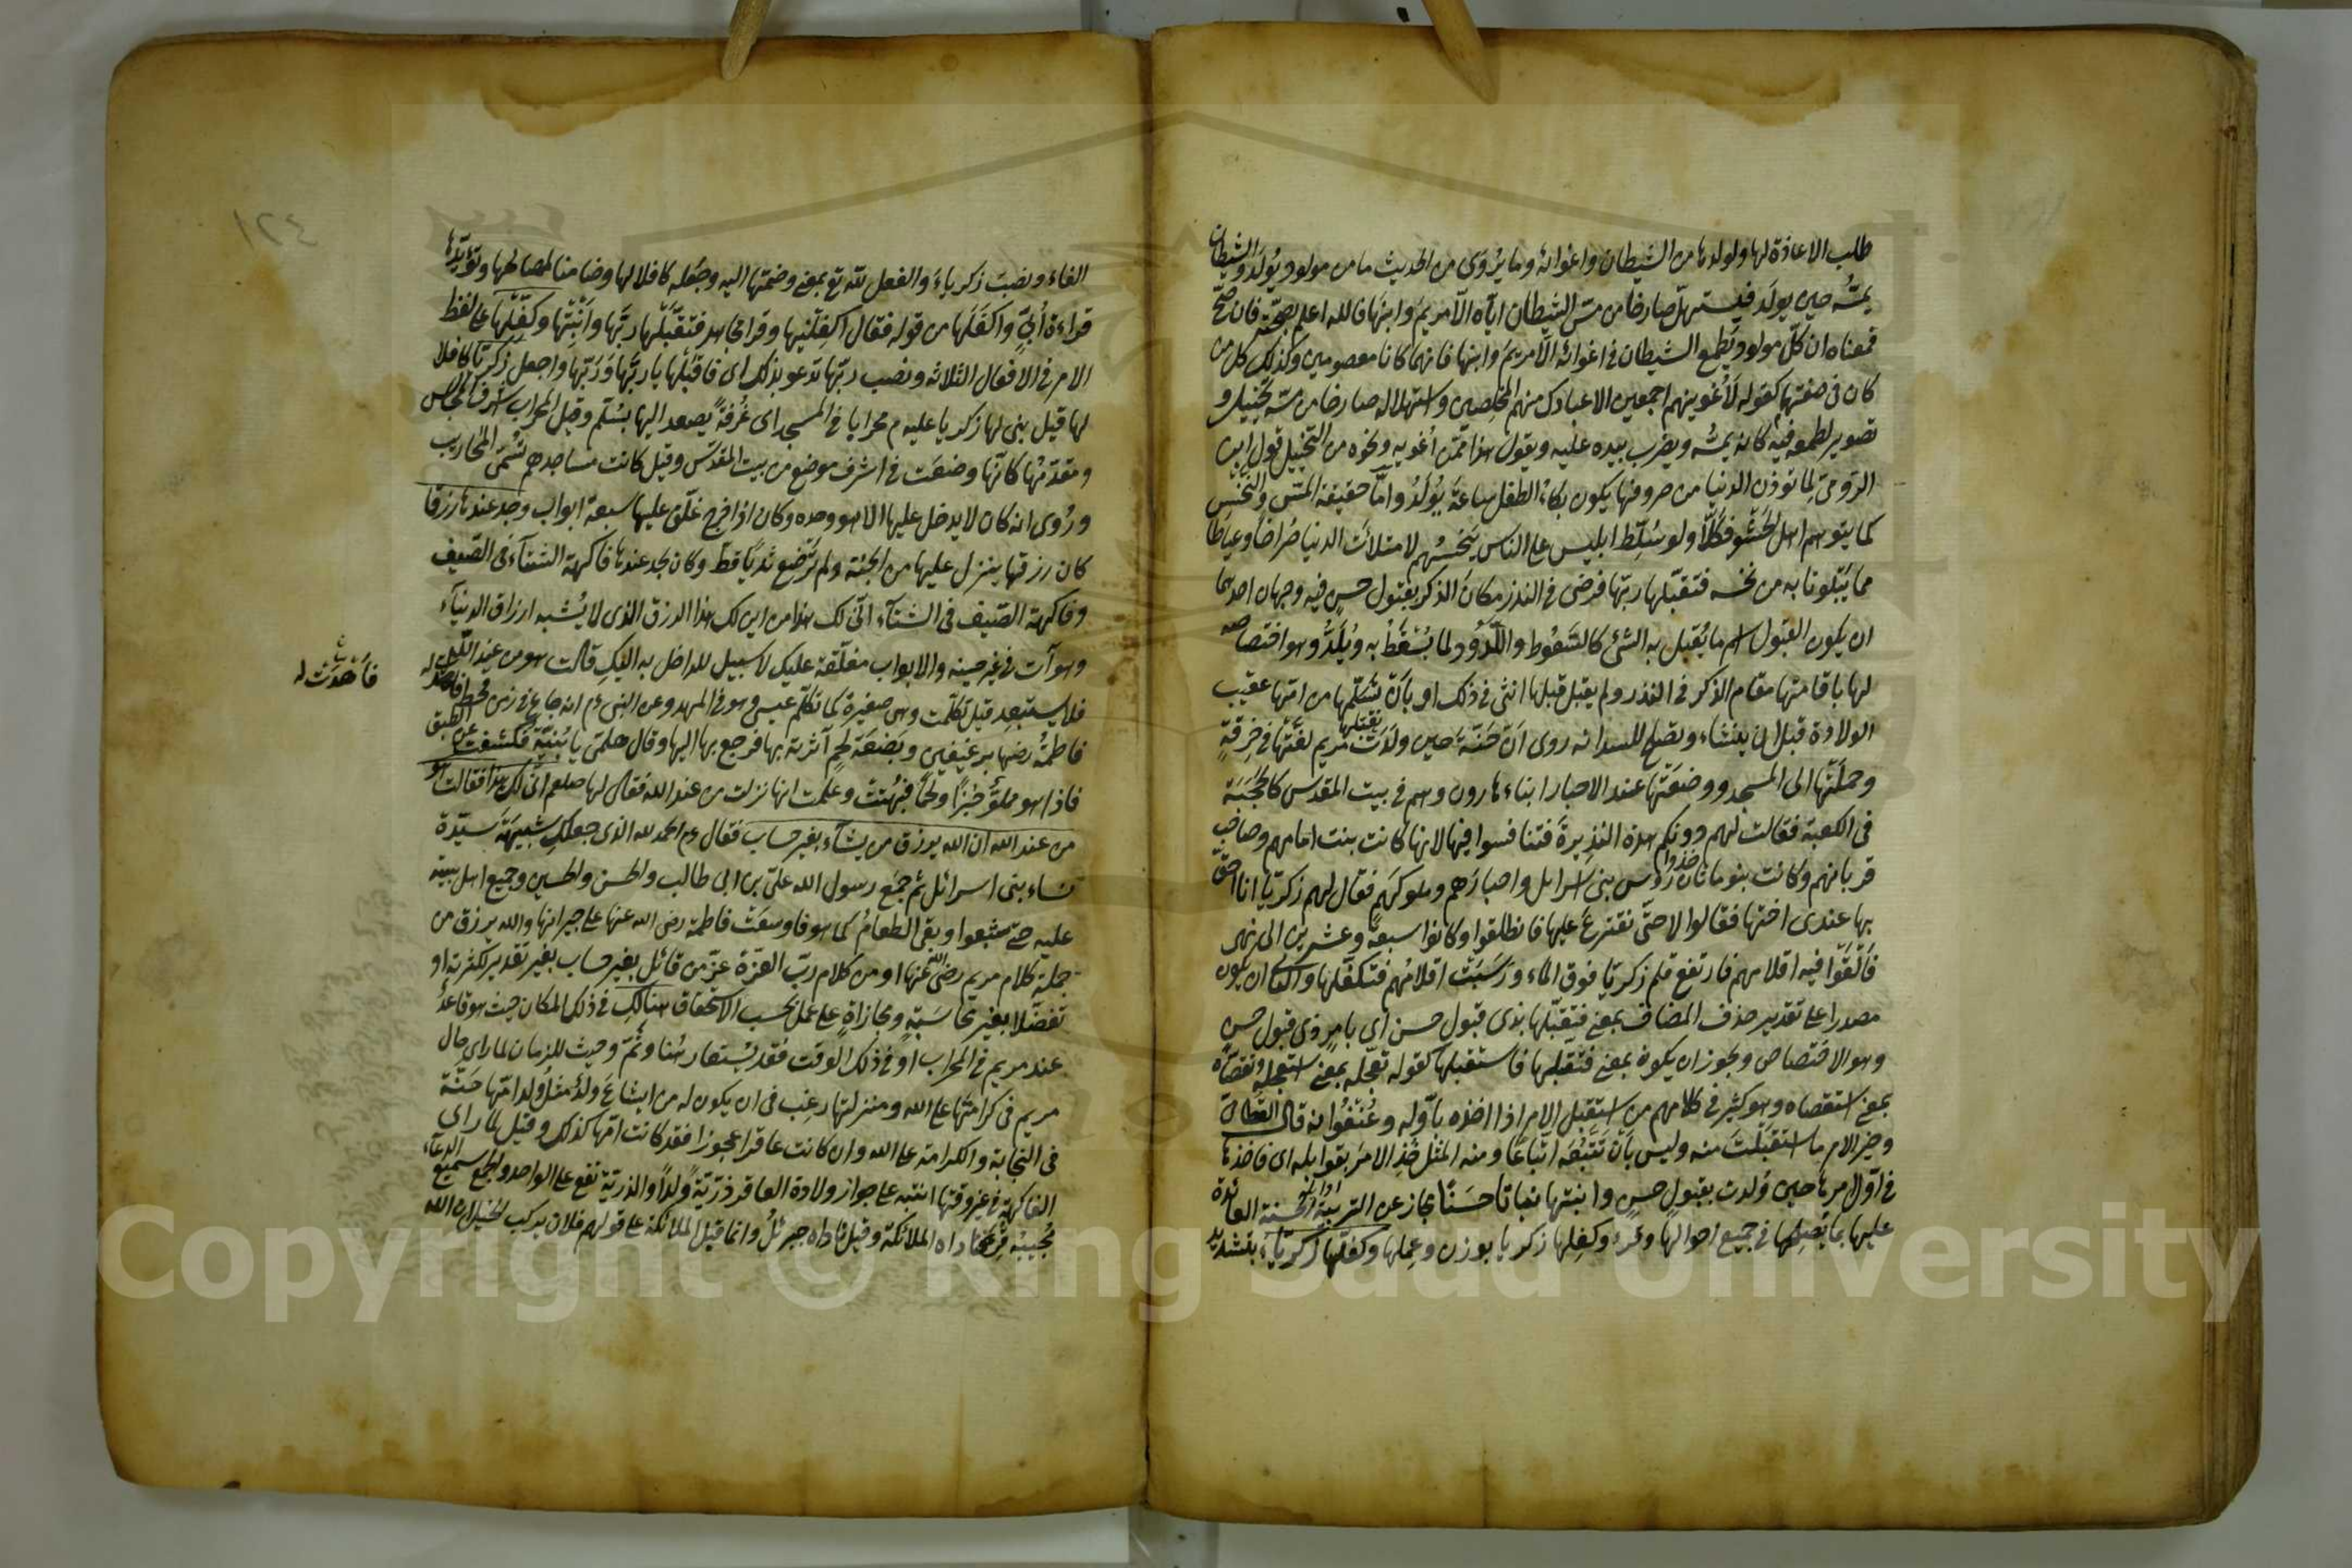 طلب الاعاذة لها ولولدها من الشيطان واغوائه وما يُروى من الحديث ما من مولود يُولَد والشيطان
يمسُّه حين يولَد فيستهلّ صارخا من مسّ الشيطان اياه الّا مريمَ وابنَها فالله اعلم بصحته فان صحّ
فمعناه ان كلّ مولود يَطمع الشيطان فى اغوائه الّا مريمَ وابنها فانهما كانا معصومين وكذلك كل من
كان فى صفتهما كقوله لَأُغوينهم اجمعين الا عبادك منهم المخلصين واستهلاله صارخا من مسّه تخييل و
تصوير لطمعه فيه كانه يمسُّه ويضرب بيده عليه ويقول هذا ممّن اُغويه ونحوه من التخييل قول ابن
الرّومىّ لِما توذن الدنيا من صروفها يكون بكاءُ الطفل ساعةَ يُولَدُ وامّا حقيقة المسّ والنَّخْس
كما يتوهم اهل الحَشْو فكَلّا ولو سُلِّط ابليس على الناس يَنخسُهم لامتلأت الدنيا صُراخًا وعياطا
مما يَبْلُونا به من نخسه فتقبّلها ربّها فرضى فى النذر مكانَ الذكر بقبول حسنٍ فيه وجهان احدهما
ان يكون القبول اسم ما يُقبل به الشئ كالسَّعُوط واللَّدُود لما يُسْعَطُ به ويُلَدُّ وهو اختصاصه
لها باقامتها مقام الذكر فى النذر ولم يقبل قبلها انثى فى ذلك او بأن تَسَلّمها من امّها عقيب
الولادة قبل ان تنشأ وتصلح للسدانه روى انّ حَنَّة حين ولَدَت مريم لفَّتْها فى خِرقةٍ
وحملَتْها الى المسجد ووضعَتْها عند الاحبار ابناء هارون وهم فى بيت المقدس كالحَجَبَة
فى الكعبة فقالت لهم دونكم هذه النذيرةَ فتنافسوا فيها لانها كانت بنت امامهم وصاحبِ
قربانهم وكانت بنو ماثان رؤس بنى اسرايل واحبارَهم وملوكَهم فقال لهم زكريّا انا احقّ
بها عندى اختها فقالوا لا حتّى نقترع عليها فانطلقوا وكانوا سبعة وعشرين الى نهر
فَاَلْقَوْا فيه اقلامهم فارتفع قلم زكريّا فوق الماء ورَسَبَتْ اقلامُهم فتكفّلها والثانى ان يكون
مصدرا على تقدير حذف المضاف بمعنى فتقبّلها بذى قبول حسن اى بامر ذى قبول حسن
وهو الاختصاص ويجوز ان يكون بمعنى فتقبلها فاستقبلها كقوله تعجّله بمعنى استعجله وتقصّاه
بمعنى استقصاه وهو كثير فى كلامهم من استقبل الامر اذا اخذه باوّله وعُنْفُوانه قال القطامى
وخير الامر ما استقبلْتَ منه وليس بأن تَتَّبَّعَه اتّباعًا ومنه المثل خُذِ الامرَ بقوابله اى فاخذها
فى اوّل امرها حين وُلدت بقبولٍ حسنٍ وانبتها نباتا حسَنًا مجاز عن التربية الحسنة العائدة
عليها بما يُصلِحها فى جميع احوالها وقرئ وكفِلها زكريا بوزن وعِملها وكفّلها زكريّاءَ بتشديد
الفاء ونصبَ زكرياءَ والفعل لله تع بمعنى وضمّها اليه وجعَله كافلا لها وضامنا لمصالحها ويُؤيّدُها
قراءة اُبىّ واكفَلَها من قوله فقال اكفِلْنيها وقرا مجاهد فتقبَّلْها ربَّها وانْبِتْها وكفِّلْها على لفظ
الامر فى الافعال الثلاثه ونصب ربّها تدعو بذلك اى فاقبَلْها يا ربَّها ورَبِّها واجعل زكريّا كافلا
لها قيل بنى لها زكريا عليه م محرابا فى المسجد اى غُرفة يصعد اليها بسُلّم وقيل المحراب اشرف المجالس
ومقدّمُها كانّها وضعَت فى اشرف موضع من بيت المقدس وقيل كانت مساجدهم تُسمّى المحاريب
ورُوى انه كان لا يدخل عليها الا هو وحده وكان اذا خرج غلّق عليها سبعة ابواب وجد عندها رزقا
كان رزقها ينزل عليها من الجنّة ولم ترضع ثديًا قطّ وكان يجد عندها فاكهة الشتآء فى الصّيف
وفاكهة الصّيف فى الشتآء انّى لك هذا من اين لك هذا الرزق الذى لا يُشبه ارزاق الدنيآء
وهو آت فى غير حينه والابواب مغلّقة عليك لا سبيل للداخل به اليكِ قالت هو من عند اللّه
فلا يستبعد قيل تكلّمت وهى صغيرة كما تكلّم عيسى وهو فى المهد وعن النبى ءم انه جاع فى زمن قحط فاهدت له
فاَهْدَتْ له
فاطمةُ رضها برغيفين وبَضعَة لحمٍ آثرته بها فرجع بها اليها وقال هلمّى يا بُنيّة فكشفت عن الطبق
فاذا هو مملوّ خبزًا ولحمًا فبُهتت وعلمت انها نزلت من عند الله فقال لها صلعم انّى لك هذا فقالت هو
من عند الله ان الله يرزق من يشآء بغير حساب فقال ءم الحمد لله الذى جعلكِ شبيهةَ سيّدة
نساء بنى اسرائل ثم جمَع رسول الله علىّ بن ابى طالب والحسن والحسين وجميع اهل بيته
عليه حتى شبعوا وبقى الطعامُ كما هو فاوسعَتْ فاطمة رضى الله عنها على جيرانها والله يرزق من
جملة كلام مريم رضى الله عنها او من كلام ربّ العزة عزّ من قائل بغير حساب بغير تقدير لكثرته او
تفضّلا بغير محاسَبةٍ ومجازاةٍ على عمل بحسب الاستحقاق هنالك فى ذلك المكان حيث هو قاعدٌ
عند مريم فى المحراب او فى ذلك الوقت فقد يُستعار هُنا وثَمّ وحيث للزمان لما راى حال
مريم فى كرامتها على الله ومنزلتها رغِب فى ان يكون له من ايشاعَ ولدٌ مثلُ ولد امّها حَنّة
فى النجابة والكرامة على الله وان كانت عاقرا عجوزا فقد كانت امّها كذلك وقيل لما راى
الفاكهة فى غير وقتها انتبه على جواز ولادة العاقر ذرّيّةً ولدًا والذرية تقع على الواحد والجمع سميع الدعآء
مُجيبُه قرئ فناداه الملائكة وقيل ناداه جبرئلُ وانما قيل الملائكة على قولهم فلان يركب الخيل ان الله
١٢٤
Copyright © King Saud University